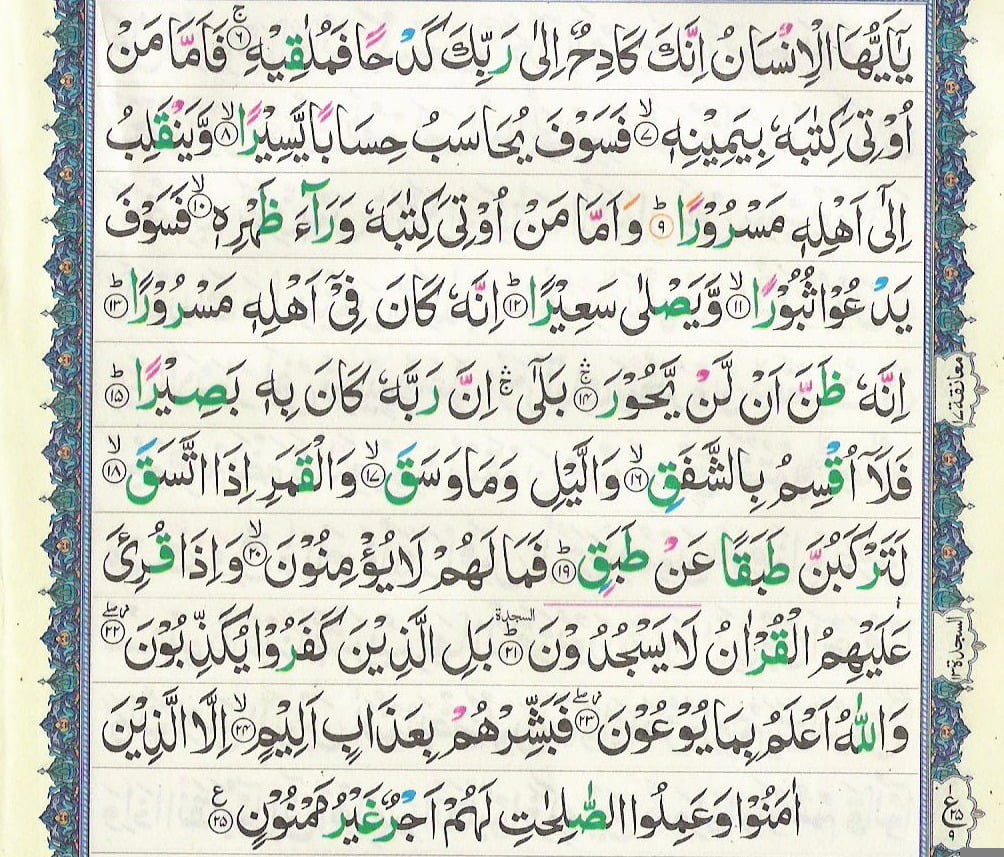 يٰۤاَيُّهَا الْاِنْسَانُ اِنَّكَ كَادِحٌ اِلٰى رَبِّكَ كَدْحًا فَمُلٰقِيْهِ ۚ﴿۶﴾ فَاَمَّا مَنْ
اُوْتِىَ كِتٰبَهٗ بِيَمِيْنِهٖ ۙ﴿۷﴾ فَسَوْفَ يُحَاسَبُ حِسَابًا يَّسِيْرًا ۙ﴿۸﴾ وَّيَنْقَلِبُ
اِلٰٓى اَهْلِهٖ مَسْرُوْرًا ؕ﴿۹﴾ وَاَمَّا مَنْ اُوْتِىَ كِتٰبَهٗ وَرَآءَ ظَهْرِهٖ ۙ﴿۱۰﴾ فَسَوْفَ
يَدْعُوْا ثُبُوْرًا ۙ﴿۱۱﴾ وَّيَصْلٰى سَعِيْرًا ؕ﴿۱۲﴾ اِنَّهٗ كَانَ فِىْۤ اَهْلِهٖ مَسْرُوْرًا ؕ﴿۱۳﴾
اِنَّهٗ ظَنَّ اَنْ لَّنْ يَّحُوْرَ ۛۚ﴿۱۴﴾ بَلٰٓى ۛۚ اِنَّ رَبَّهٗ كَانَ بِهٖ بَصِيْرًا ؕ﴿۱۵﴾
معانقة ۱۷
فَلَاۤ اُقْسِمُ بِالشَّفَقِ ۙ﴿۱۶﴾ وَالَّيْلِ وَمَا وَسَقَ ۙ﴿۱۷﴾ وَالْقَمَرِ اِذَا اتَّسَقَ ۙ﴿۱۸﴾
لَتَرْكَبُنَّ طَبَقًا عَنْ طَبَقٍ ؕ﴿۱۹﴾ فَمَا لَهُمْ لَا يُؤْمِنُوْنَ ۙ﴿۲۰﴾ وَاِذَا قُرِئَ
عَلَيْهِمُ الْقُرْاٰنُ لَا يَسْجُدُوْنَ السجدة ؕ﴿۲۱﴾ بَلِ الَّذِيْنَ كَفَرُوْا يُكَذِّبُوْنَ ۖ﴿۲۲﴾
السجدة ۱۳
وَاللّٰهُ اَعْلَمُ بِمَا يُوْعُوْنَ ۖ﴿۲۳﴾ فَبَشِّرْهُمْ بِعَذَابٍ اَلِيْمٍ ۙ﴿۲۴﴾ اِلَّا الَّذِيْنَ
اٰمَنُوْا وَعَمِلُوا الصّٰلِحٰتِ لَهُمْ اَجْرٌ غَيْرُ مَمْنُوْنٍ ع﴿۲۵﴾
ع ۱ ۲۵ ۹